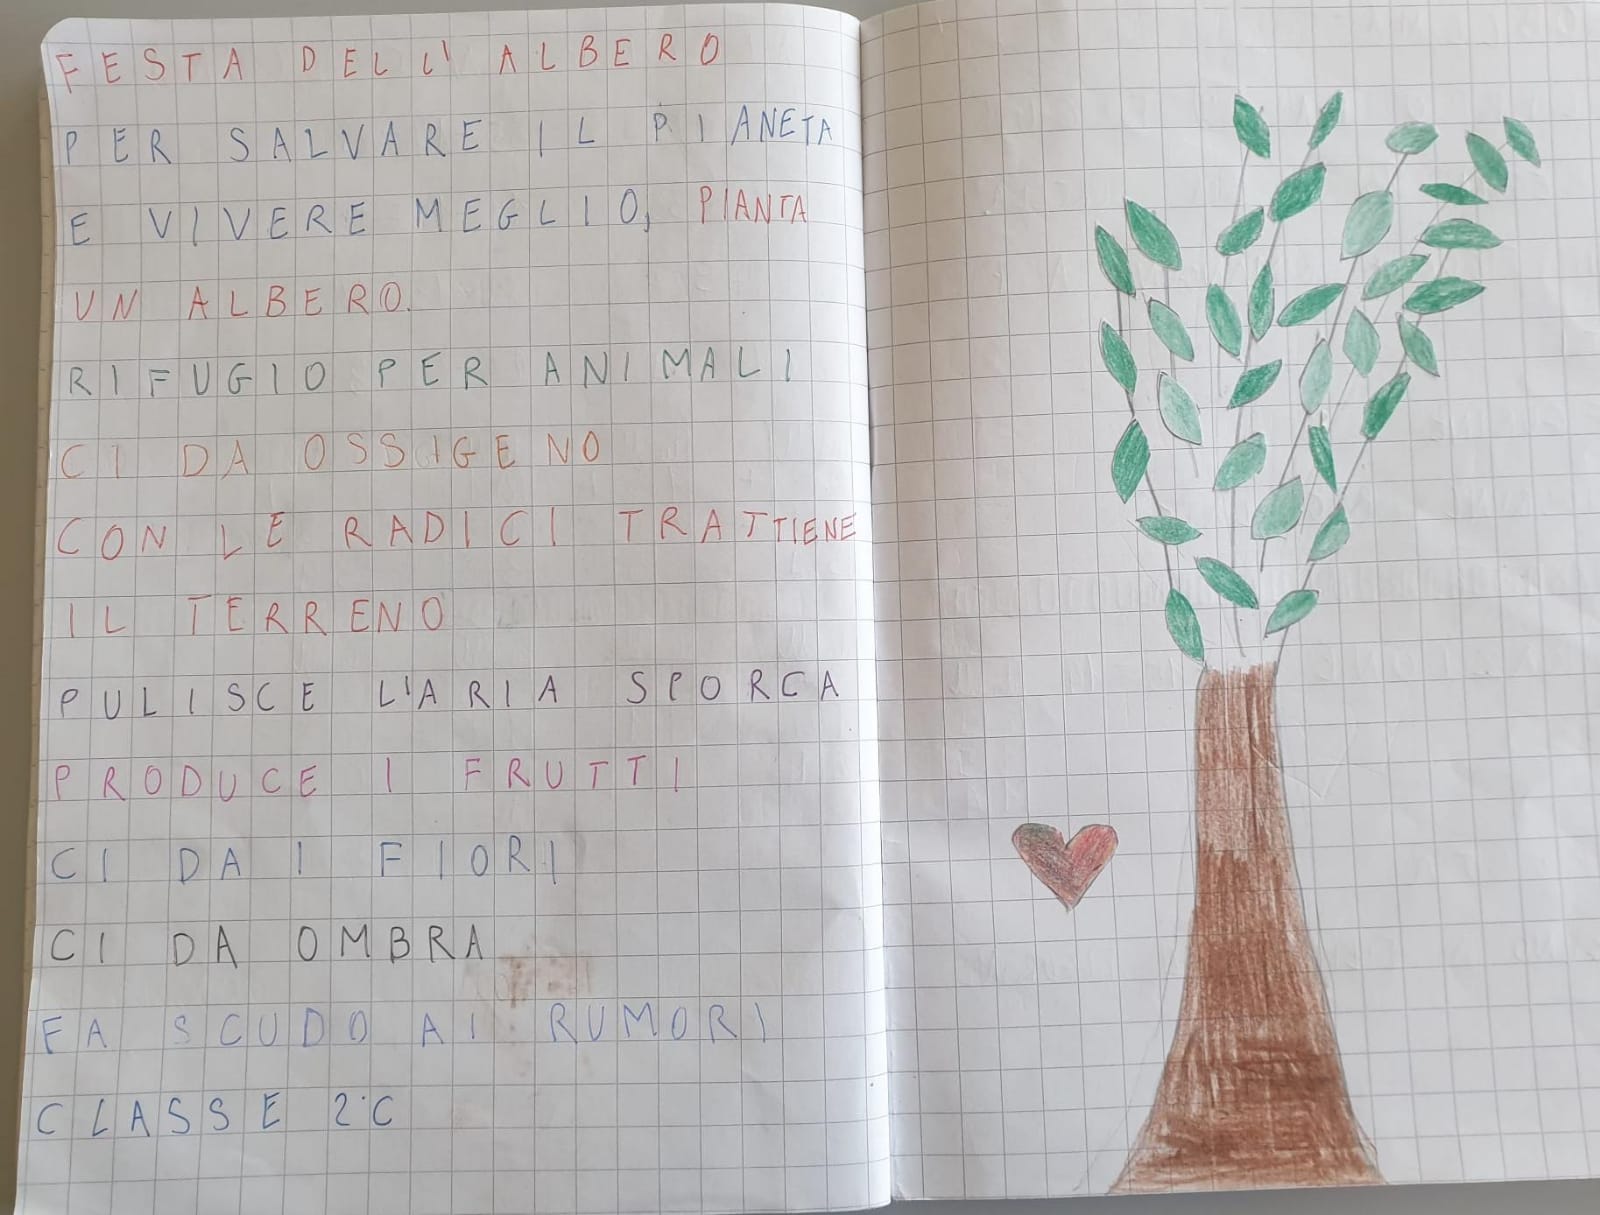 FESTA DELL'ALBERO
PER SALVARE IL PIANETA
E VIVERE MEGLIO, PIANTA
UN ALBERO.
RIFUGIO PER ANIMALI
CI DA OSSIGENO
CON LE RADICI TRATTIENE
IL TERRENO
PULISCE L'ARIA SPORCA
PRODUCE I FRUTTI
CI DA I FIORI
CI DA OMBRA
FA SCUDO AI RUMORI
CLASSE 2°C